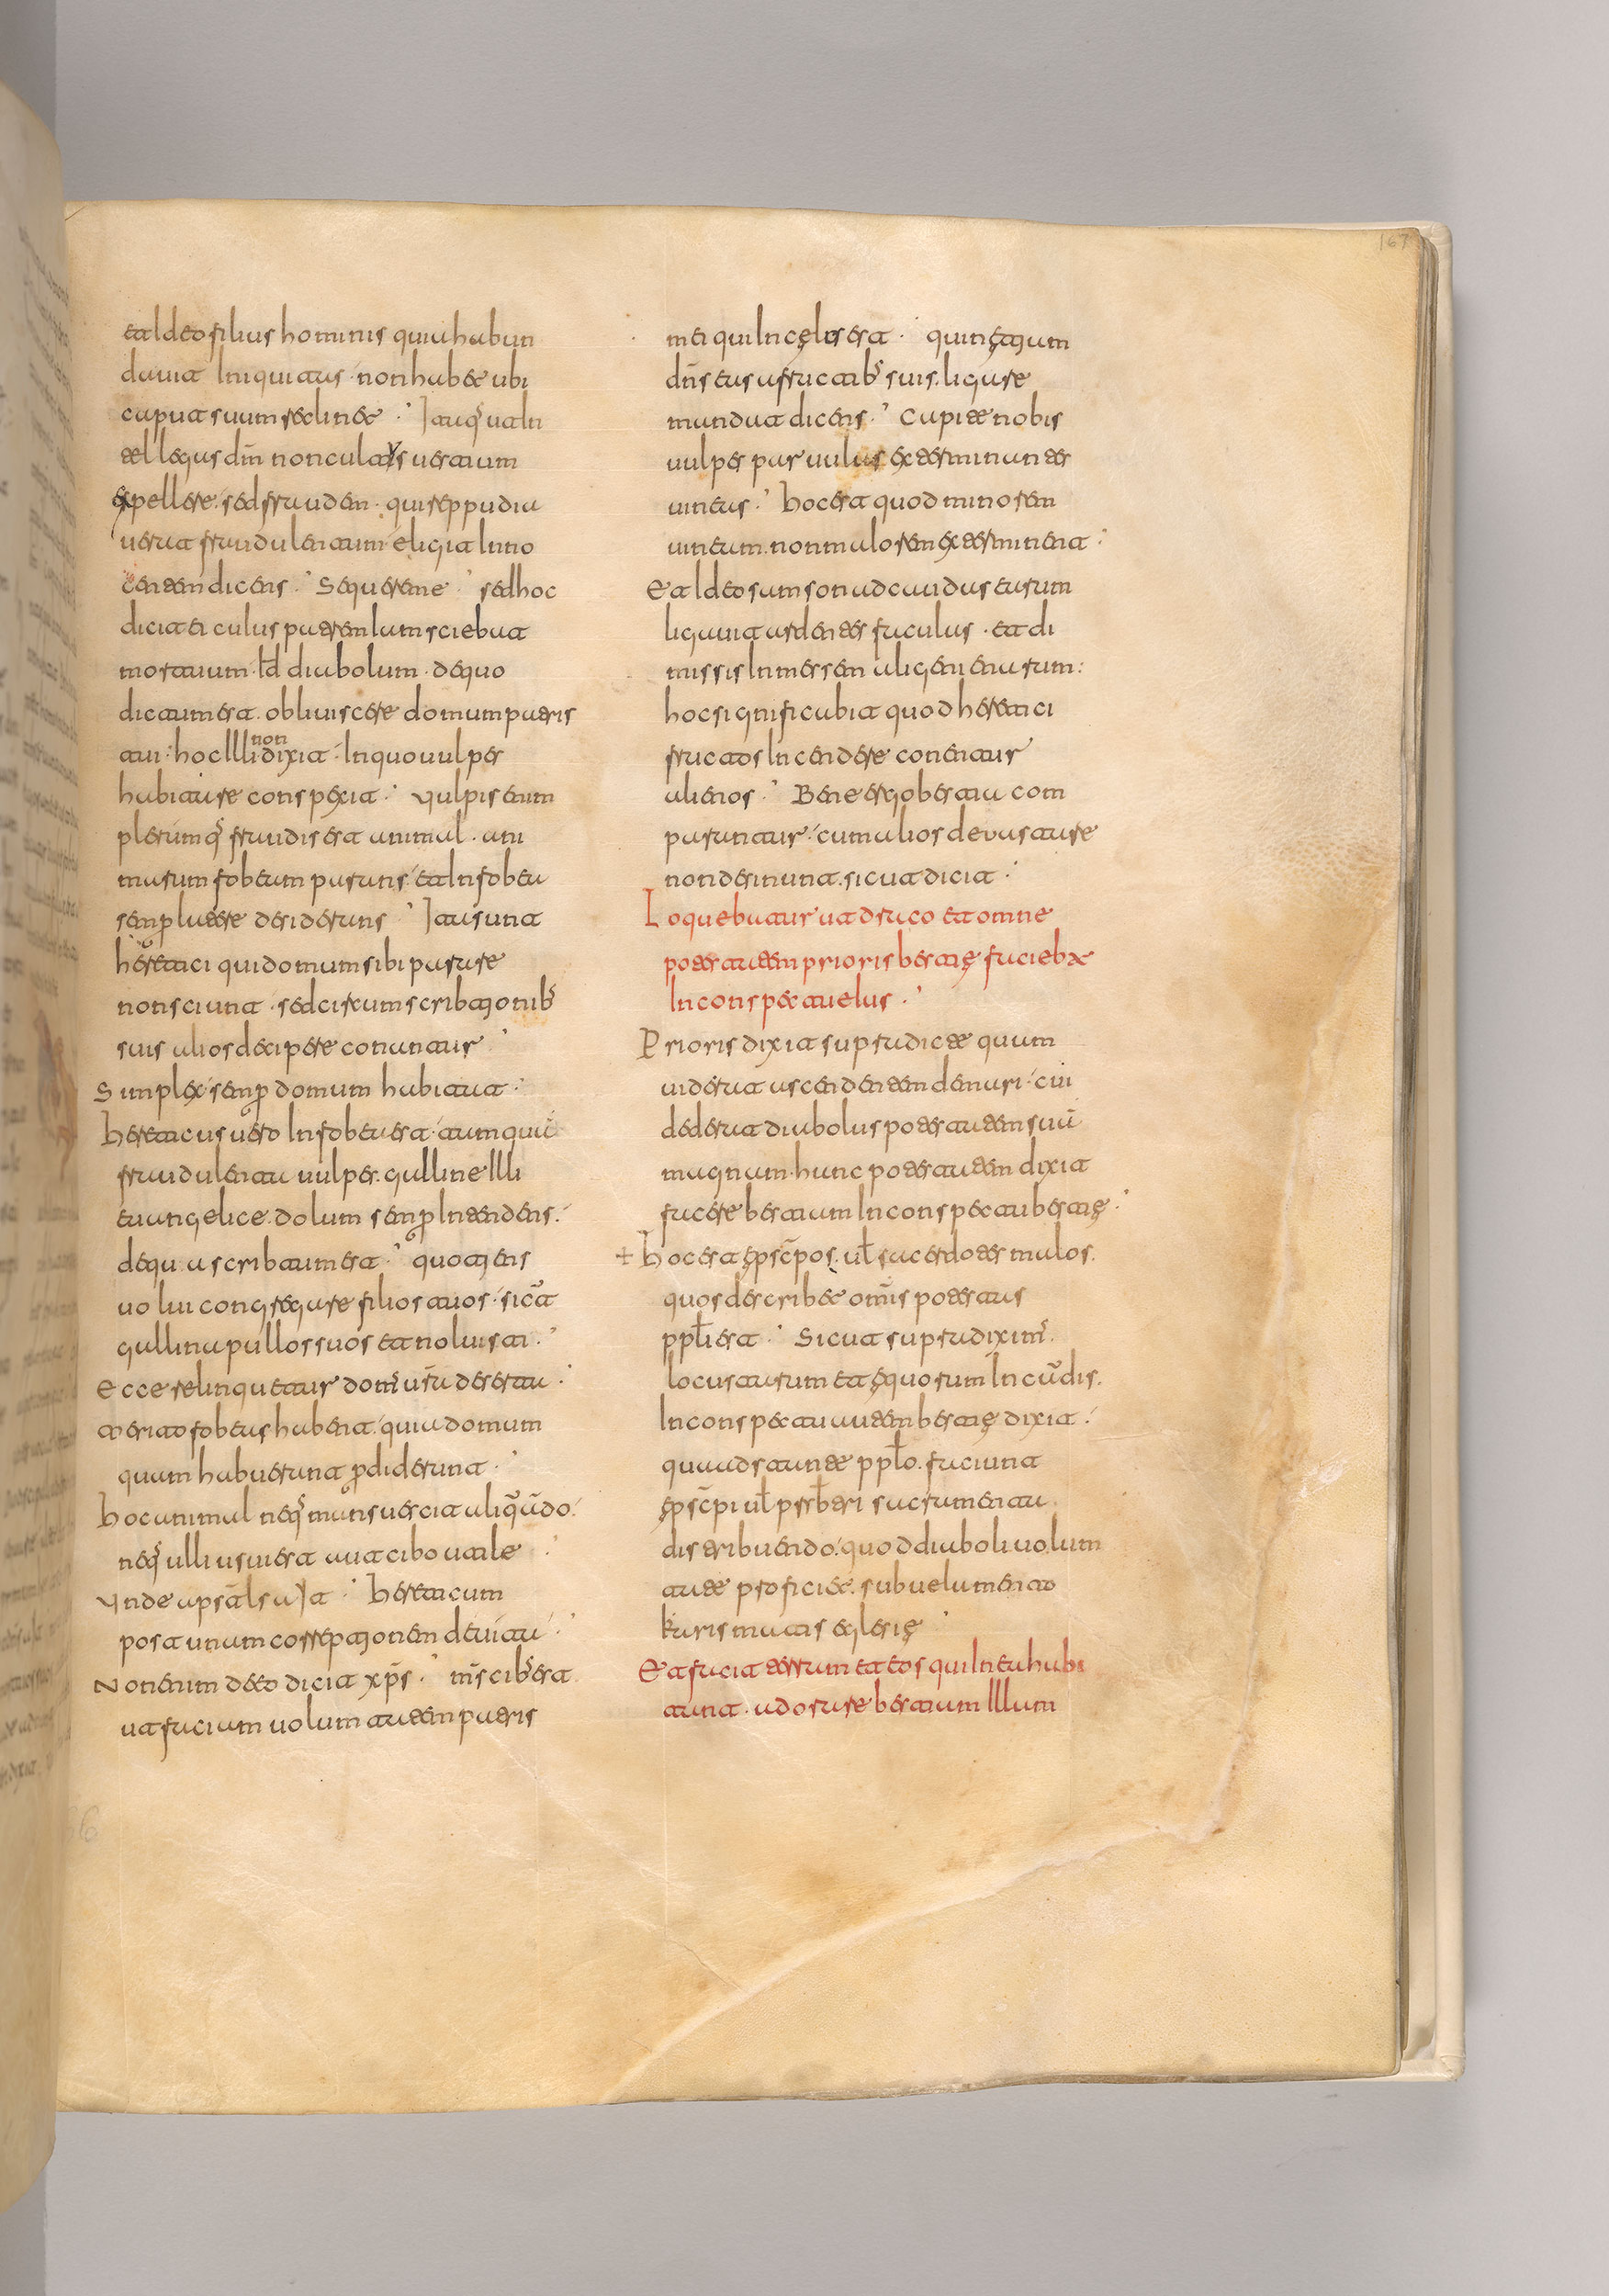 et Ideo filius hominis quia habun
davit Iniquitas non habet ubi
caput suum reclinet Itaq̄ ut In
tellegas dn̄m non versutum
expellere sed fraudem qui reppudia
verat fraudulentum eligit Inno
centem dicens Sequereme sed hoc
dicit ei cuIus patrem Iam sciebat
mortuum Id diabolum de quo
dictum est obliviscere domum patris
tui hoc Illi non dixit In quo vulpes
habitare conspexit Vulpis enim
plerumq̄ fraudis est animal uni
marum fobeam parans et In fobea
semp latere desiderans Ita sunt
heretici qui domum sibi parare
non sciunt sed circumscribtionib̄
suis alios decipere conantur
Simplex semp domum habitat
hereticus vero In fobea est tamquā
fraudulenta vulpes galline Illi
evangelice dolum semp Intendens
de qua scribtum est quotiens
volui congregare filios tuos sicūt
gallina pullos suos et noluisti
Ecce relinquetur dom̄ ur̄a deserta
Merito fobeas habent quia domum
quam habuerunt pdiderunt
hoc animal neq̄ mansuescit aliquā̄do
neq̄ ulli usui est aut cibo utile
Unde apsl̄s aIt hereticum
post unam correptionem devita
Non enim de eo dicit xp̄s m̄s cib̄ est
ut faciam voluntatem patris
mei qui In cęlis est quin ętiam
dn̄s eas a fructib̄ suis ligare
mandat dicens Capite nobis
vulpes parvulas exterminantes
vineas hoc est quod minorem
vineam non maIorem exterminent
Et Ideo samson ad caudas earum
ligavit ardentes faculas et di
missis In messem aligeni enarum
hoc significabit quod heretici
fructos Incendere conentur
alienos Bene ergo bestia com
paruntur cum alios devastare
non desinunt sicut dicit
Loquebatur ut draco et omne
potestatem prioris bestię faciebat
In conspectu eIus
Prioris dixit supradicte quam
viderat ascendentem de mari cui
dederat diabolus potestatem suā
magnam hunc potestatem dixit
facere bestiam In conspectu bestię
+ hoc est ępsc̄pos ul̄ sacerdotes malos
quos describet om̄is potestas
ppl̄i est Sicut supradixim̄
locustarum et ęquorum In cāudis
In conspectu autem bestię dixit
quia adstante ppl̄o faciunt
ępsc̄pi ul̄ prsb̄teri sacramenta
distribuendo quod diaboli volum
tate proficiet sub velamento
karismatis eglesię
Et facit terram et eos qui In ea habi
tant adorare bestiam Illam